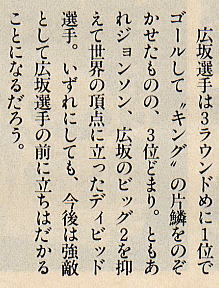 広坂選手は3ラウンドめに1位で
ゴールして〝キング〟の片鱗をのぞ
かせたものの、3位どまり。ともあ
れジョンソン、広坂のビッグ2を抑
えて世界の頂点に立ったディビッド
選手。いずれにしても、今後は強敵
として広坂選手の前に立ちはだかる
ことになるだろう。